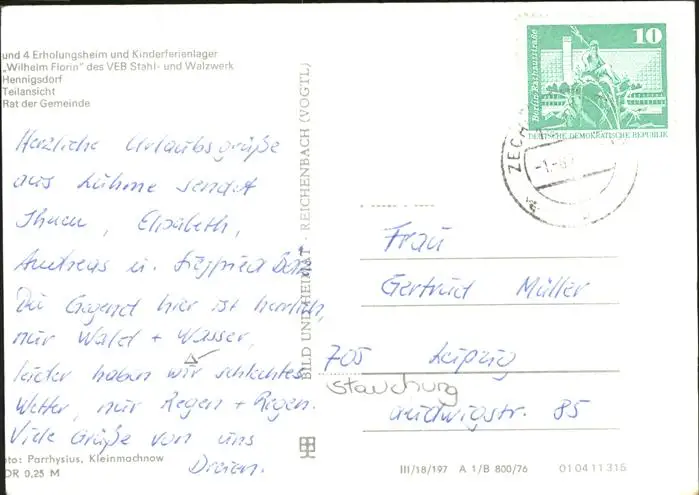 und 4 Erholungsheim und Kinderferienlager
„Wilhelm Florin" des VEB Stahl- und Walzwerk
Hennigsdorf
Teilansicht
Rat der Gemeinde
Herzliche Urlaubsgrüße
aus Lühme sendet
Ihnen, Elisabeth,
Andreas u. Siegfried
Die Gegend hier ist herrlich,
nur Wald + Wasser,
leider haben wir schlechtes
Wetter, nur Regen + Regen.
Viele Grüße von uns
Dreien.
oto: Parrhysius, Kleinmachnow
DR 0,25 M
BILD UND HEIMAT REICHENBACH (VOGTL)
Berlin, Rathausstraße
10
DEUTSCHE DEMOKRATISCHE REPUBLIK
ZECH
-1.-8
Frau
Gertrud Müller
705 Leipzig
Stauchung
Ludwigstr. 85
III/18/197 A 1/B 800/76 01 04 11 315